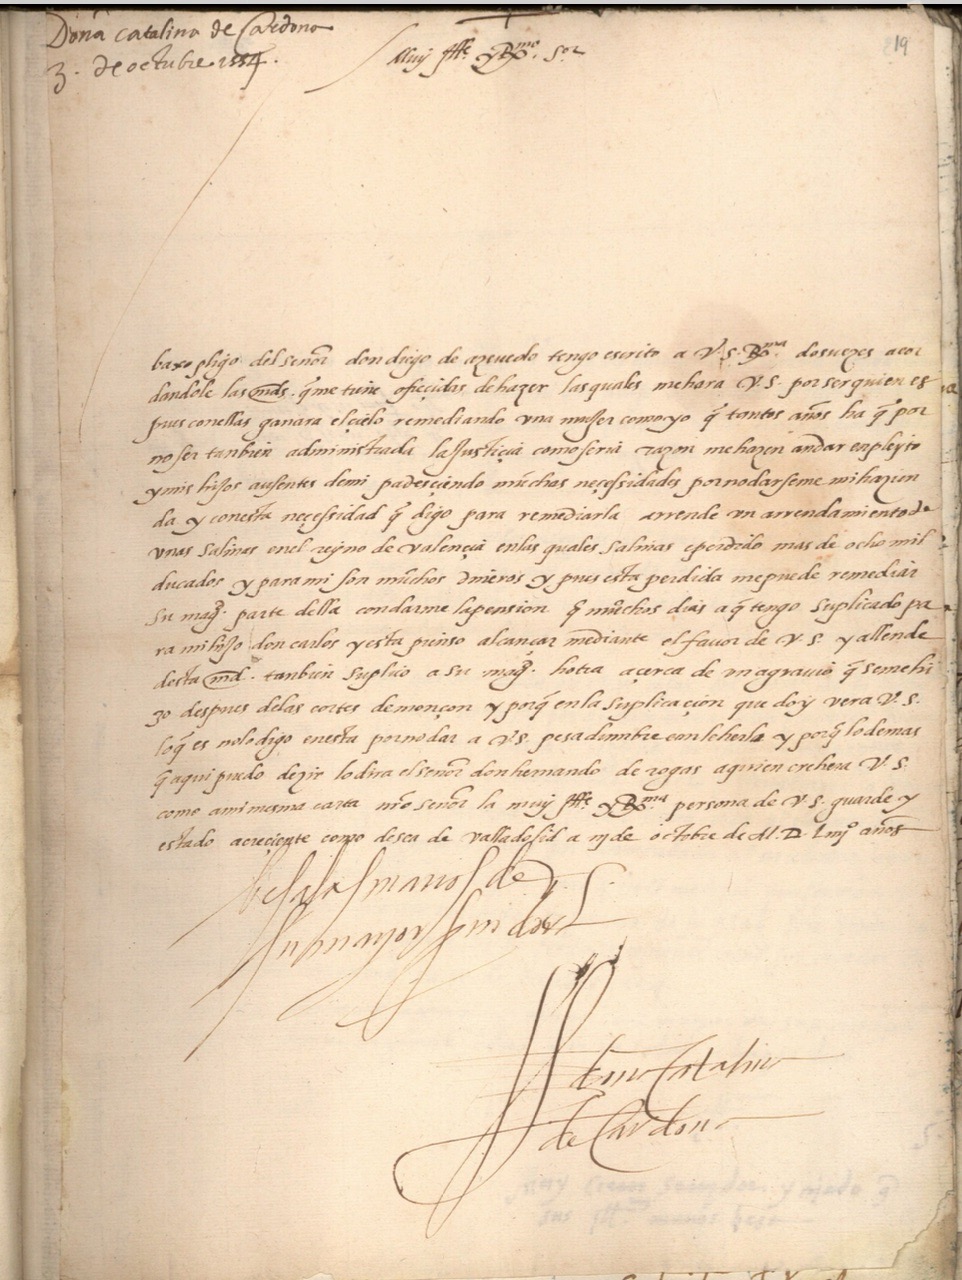 Doña catalina de Cardona
3. de octubre 1554.
19
Muy Ille. y Rmo. Sor
baxo pligo del señor don diego de azeuedo tengo escrito a V. S. Rma dos vezes acor
dandole las mds. q̃ me tiene ofreçidas de hazer las quales me hara V. S. por ser quien es
pues con ellas ganara el çielo remediando vna muller como yo q̃ tantos años ha q̃ por
no ser tanbien administrada la Justiçia como seria razon me hazen andar en pleyto
y mis hijos ausentes de mi padesçiendo muchas neçessidades por no darseme mi hazien
da y con esta neçessidad q̃ digo para remediarla arrende vn arrendamiento de
vnas salinas en el reyno de valençia en las quales salinas e perdido mas de ocho mil
ducados y para mi son muchos dineros y pues esta perdida me puede remediar
su magt. parte della con darme la pension q̃ muchos dias a q̃ tengo suplicado pa
ra mi hijo don carlos y esta pienso alcançar mediante el fauor de V. S. y allende
desta md. tanbien suplico a su magt. hotra açerca de vn agrauio q̃ se me hi
zo despues de las cortes de monçon y porq̃ en la suplicaçion que doy vera V. S.
lo q̃ es no lo digo en esta por no dar a V. S. pesadumbre con leherla y porq̃ lo demas
q̃ aqui puedo dezir lo dira el señor don hernando de rogas a quien crehera V. S.
como a mi mesma carta nro señor la muy Ille. y Rma. persona de V. S. guarde y
estado acreçiente como desea de valladolid a iij de octobre de M. D. Liiijo años
besa las manos de V. S.
su mayor seruidora
doña Catalina
de Cardona